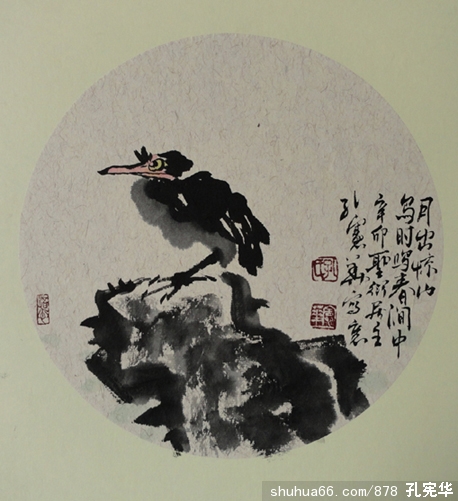 月出惊山
鸟时鸣春涧中
辛卯聖衍居主
孔憲華写意
shuhua66.com/878 孔宪华